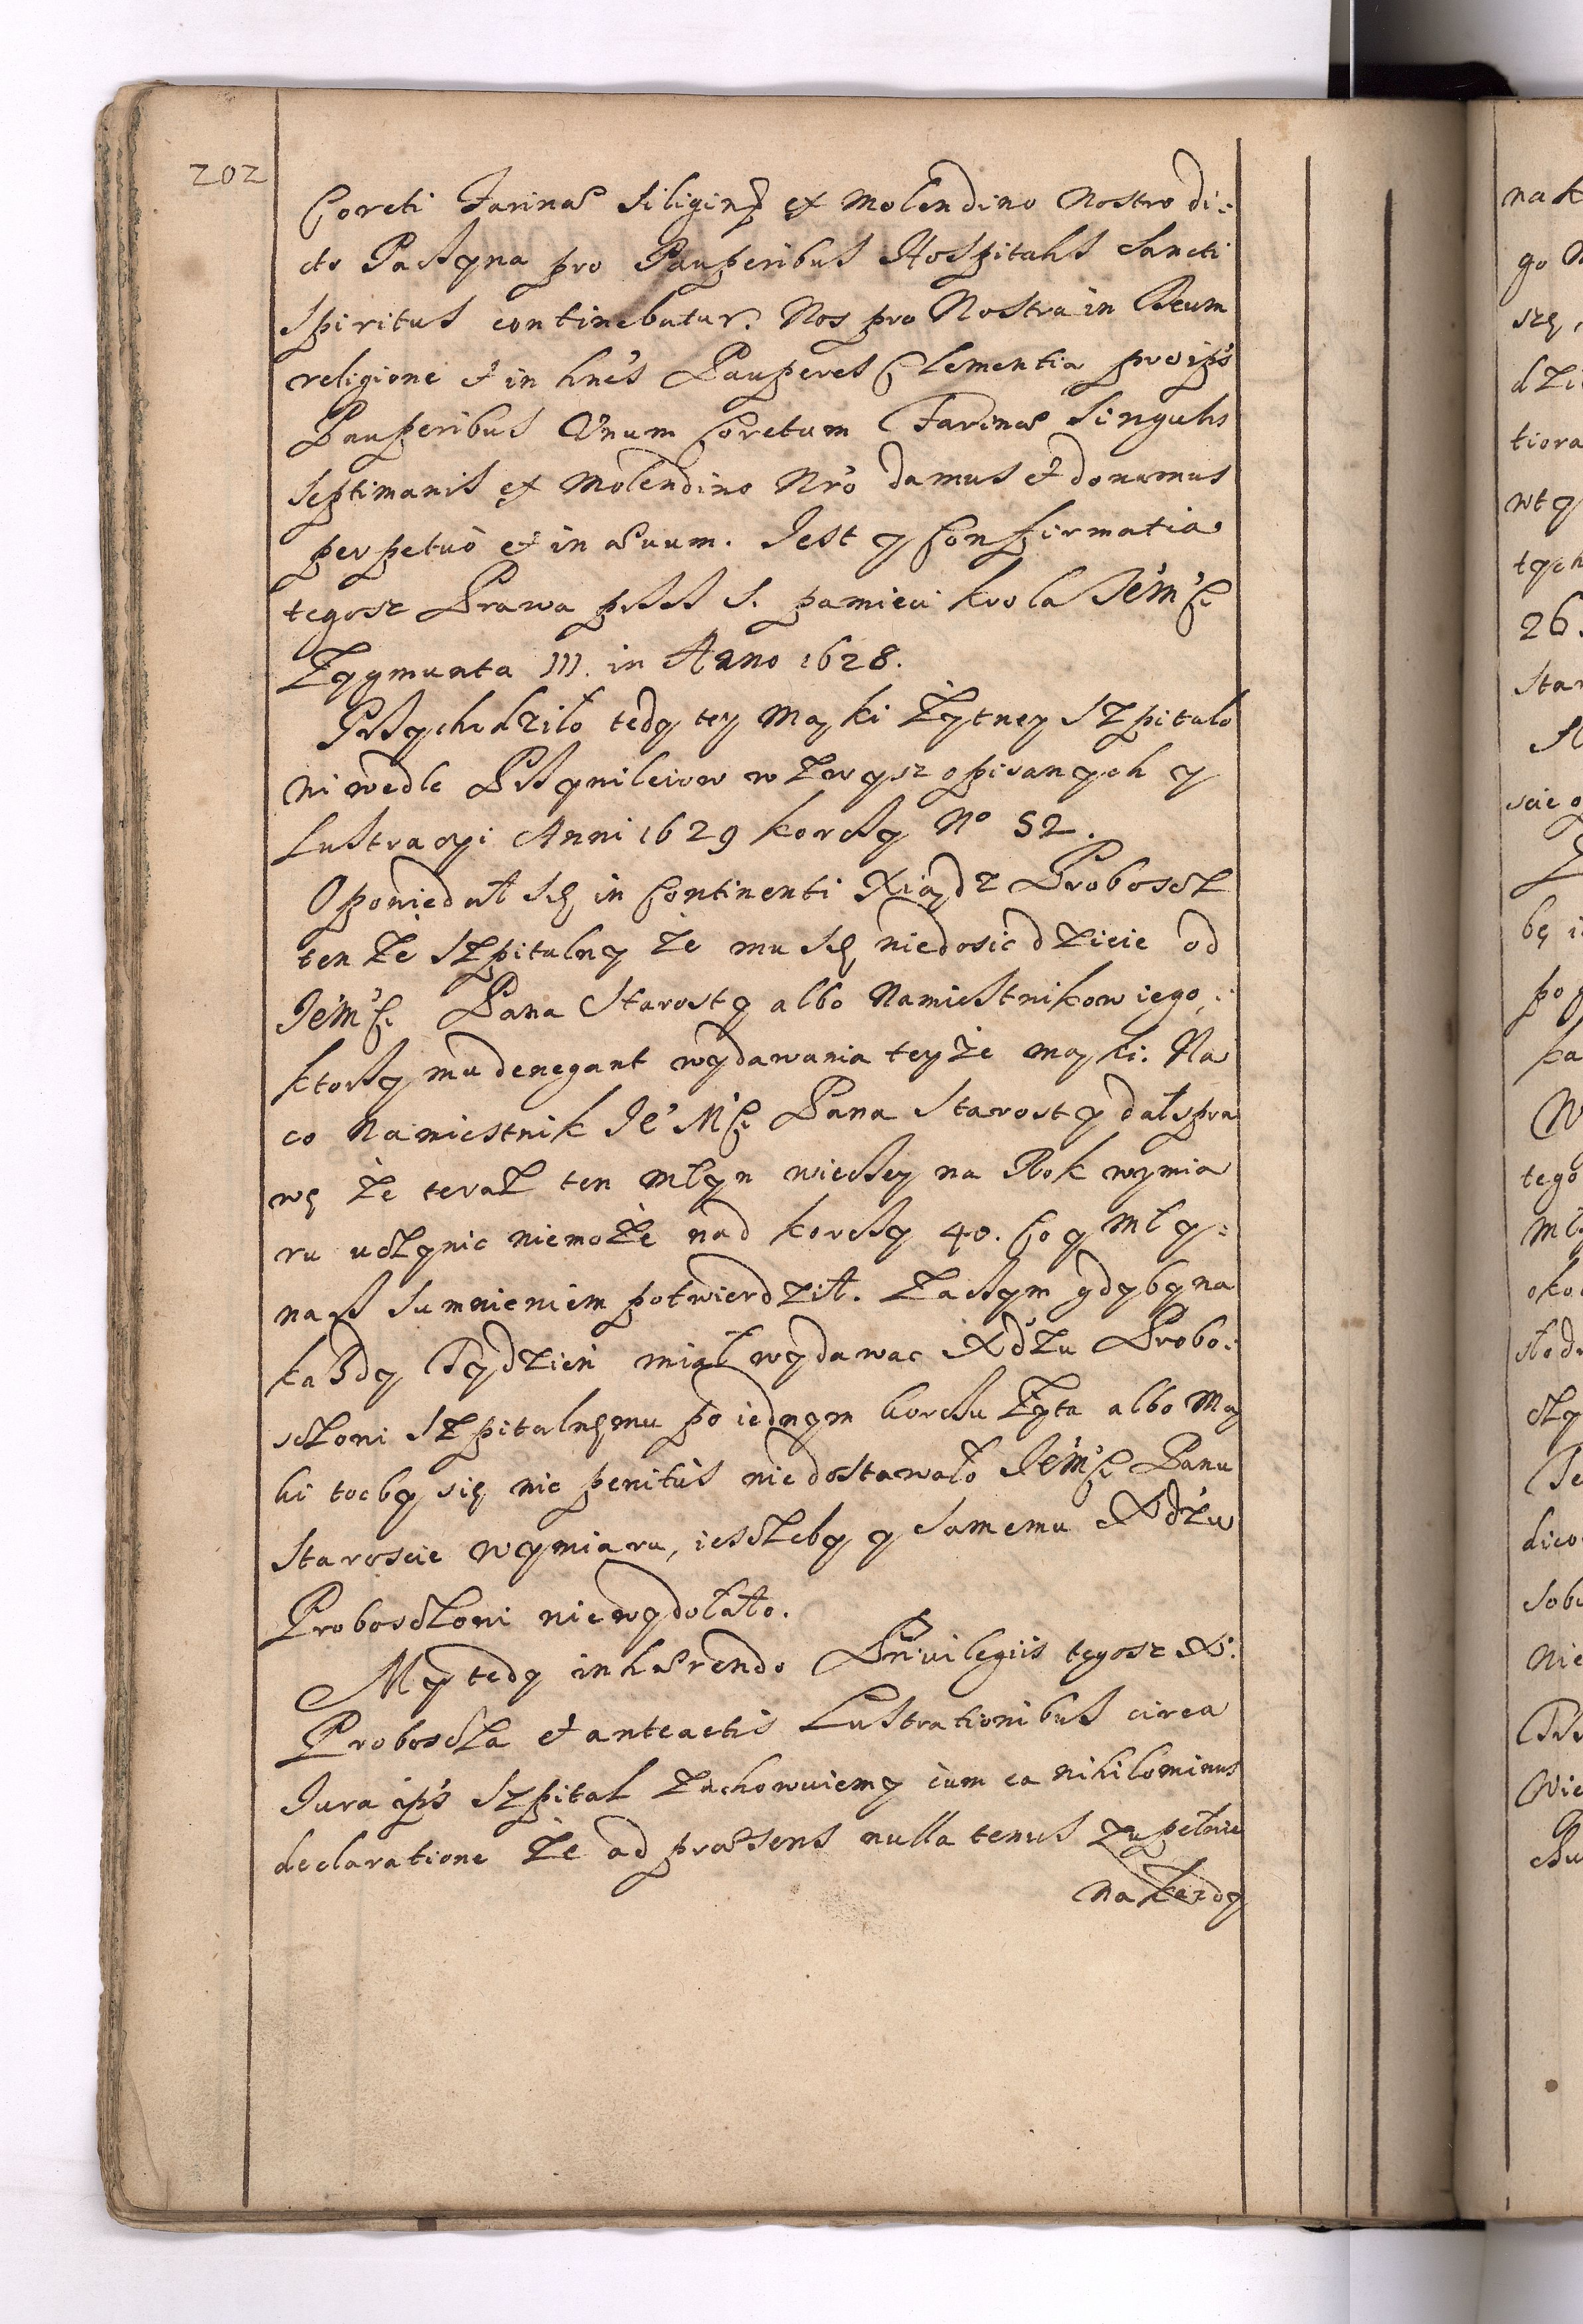 202
Coreti Farinae Siligineae ex Molendino Nostro di:
cto Paszyna pro Pauperibus Hospitalis Sancti
Spiritus continebatur. Nos pro Nostra in Deum
religione et in hnēs Pauperes Clementia pro ips
Pauperibus Vnum Coretum Farinae Singulis
Septimanis ex Molendino Nr̃o damus et donamus
perpetuò et in aeuum. Jest y Confirmatia
tegosz Prawa przez S. pamieci krola JeMCi
Zygmunta III. in Anno 1628.
Przychodziło tedy tey mąki Żytney Szpitalo
wi wedle Przywileiow wzwysz opisanych y
Lustracyi Anni 1629 korcy No 52.
Opowiedał się in Continenti Xiądz Proboscz
tenże Szpitalny że mu się niedosic dzieie od
JeMCi Pana Starosty albo Namiestnikow iego,
ktorzy mu denegant wydawania teyże mąki. Na
co Namiestnik JeMCi Pana Starosty dał spra
wę że teraz ten Młyn wiecey na Rok wymia
ru uczynic niemoże nad korcy 40. Co y Mły:
narz sumnieniem potwierdził. Zaczym gdyby na
każdy Tydzień miał wydawac Xdzu Probo:
sczowi Szpitalnemu po iednym korcu Żyta albo Mą
ki toćby się nic penitùs niedostawało JeMCi Panu
Staroscie wymiaru, ieszczeby y samemu Xdzu
Probosczowi niewydołało.
My tedy inhaerendo Priuilegiis tegosz X.
Proboscza et anteactis Lustrationibus circa
Jura ips Szpital zachowuiemy cum ea nihilominus
declaratione że ad praesens nulla tenus zupełnie
na każdy
na
go
szę,
dzi
tiora
wty
tych
26.
sta
scie
bę
po
ka
tego
Mł
oko
czy
dico
sobi
nie